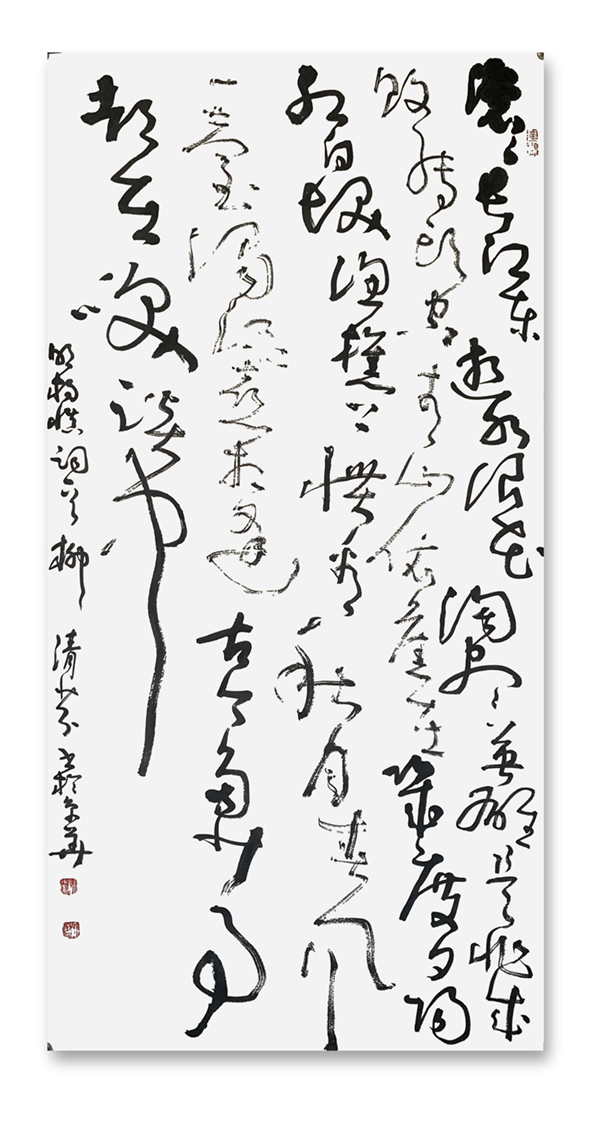 滚滚长江东逝水浪花淘尽英雄是非成
败转头空青山依旧在几度夕阳
红白发渔樵上惯看秋月春风
一壶浊酒喜相逢古今多少事
都在笑谈中
明杨慎词 柳清芬书于京华